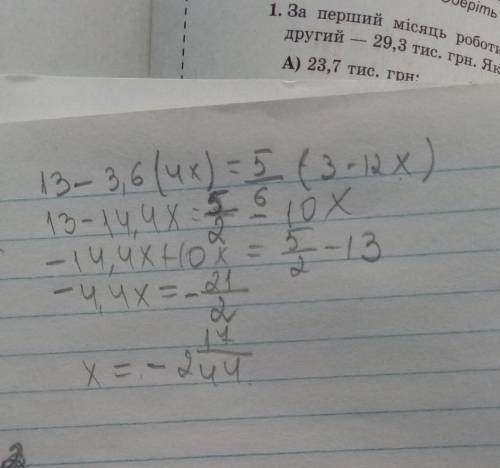 беріть
1. За перший місяць роботи
другий — 29,3 тис. грн. Як
А) 23,7 тис. грн;
13 - 3,6 (4x) = 5/6 (3 - 12x)
13 - 14,4x = 5/2 - 10x
-14,4x + 10x = 5/2 - 13
-4,4x = - 21/2
x = - 2 17/44
2